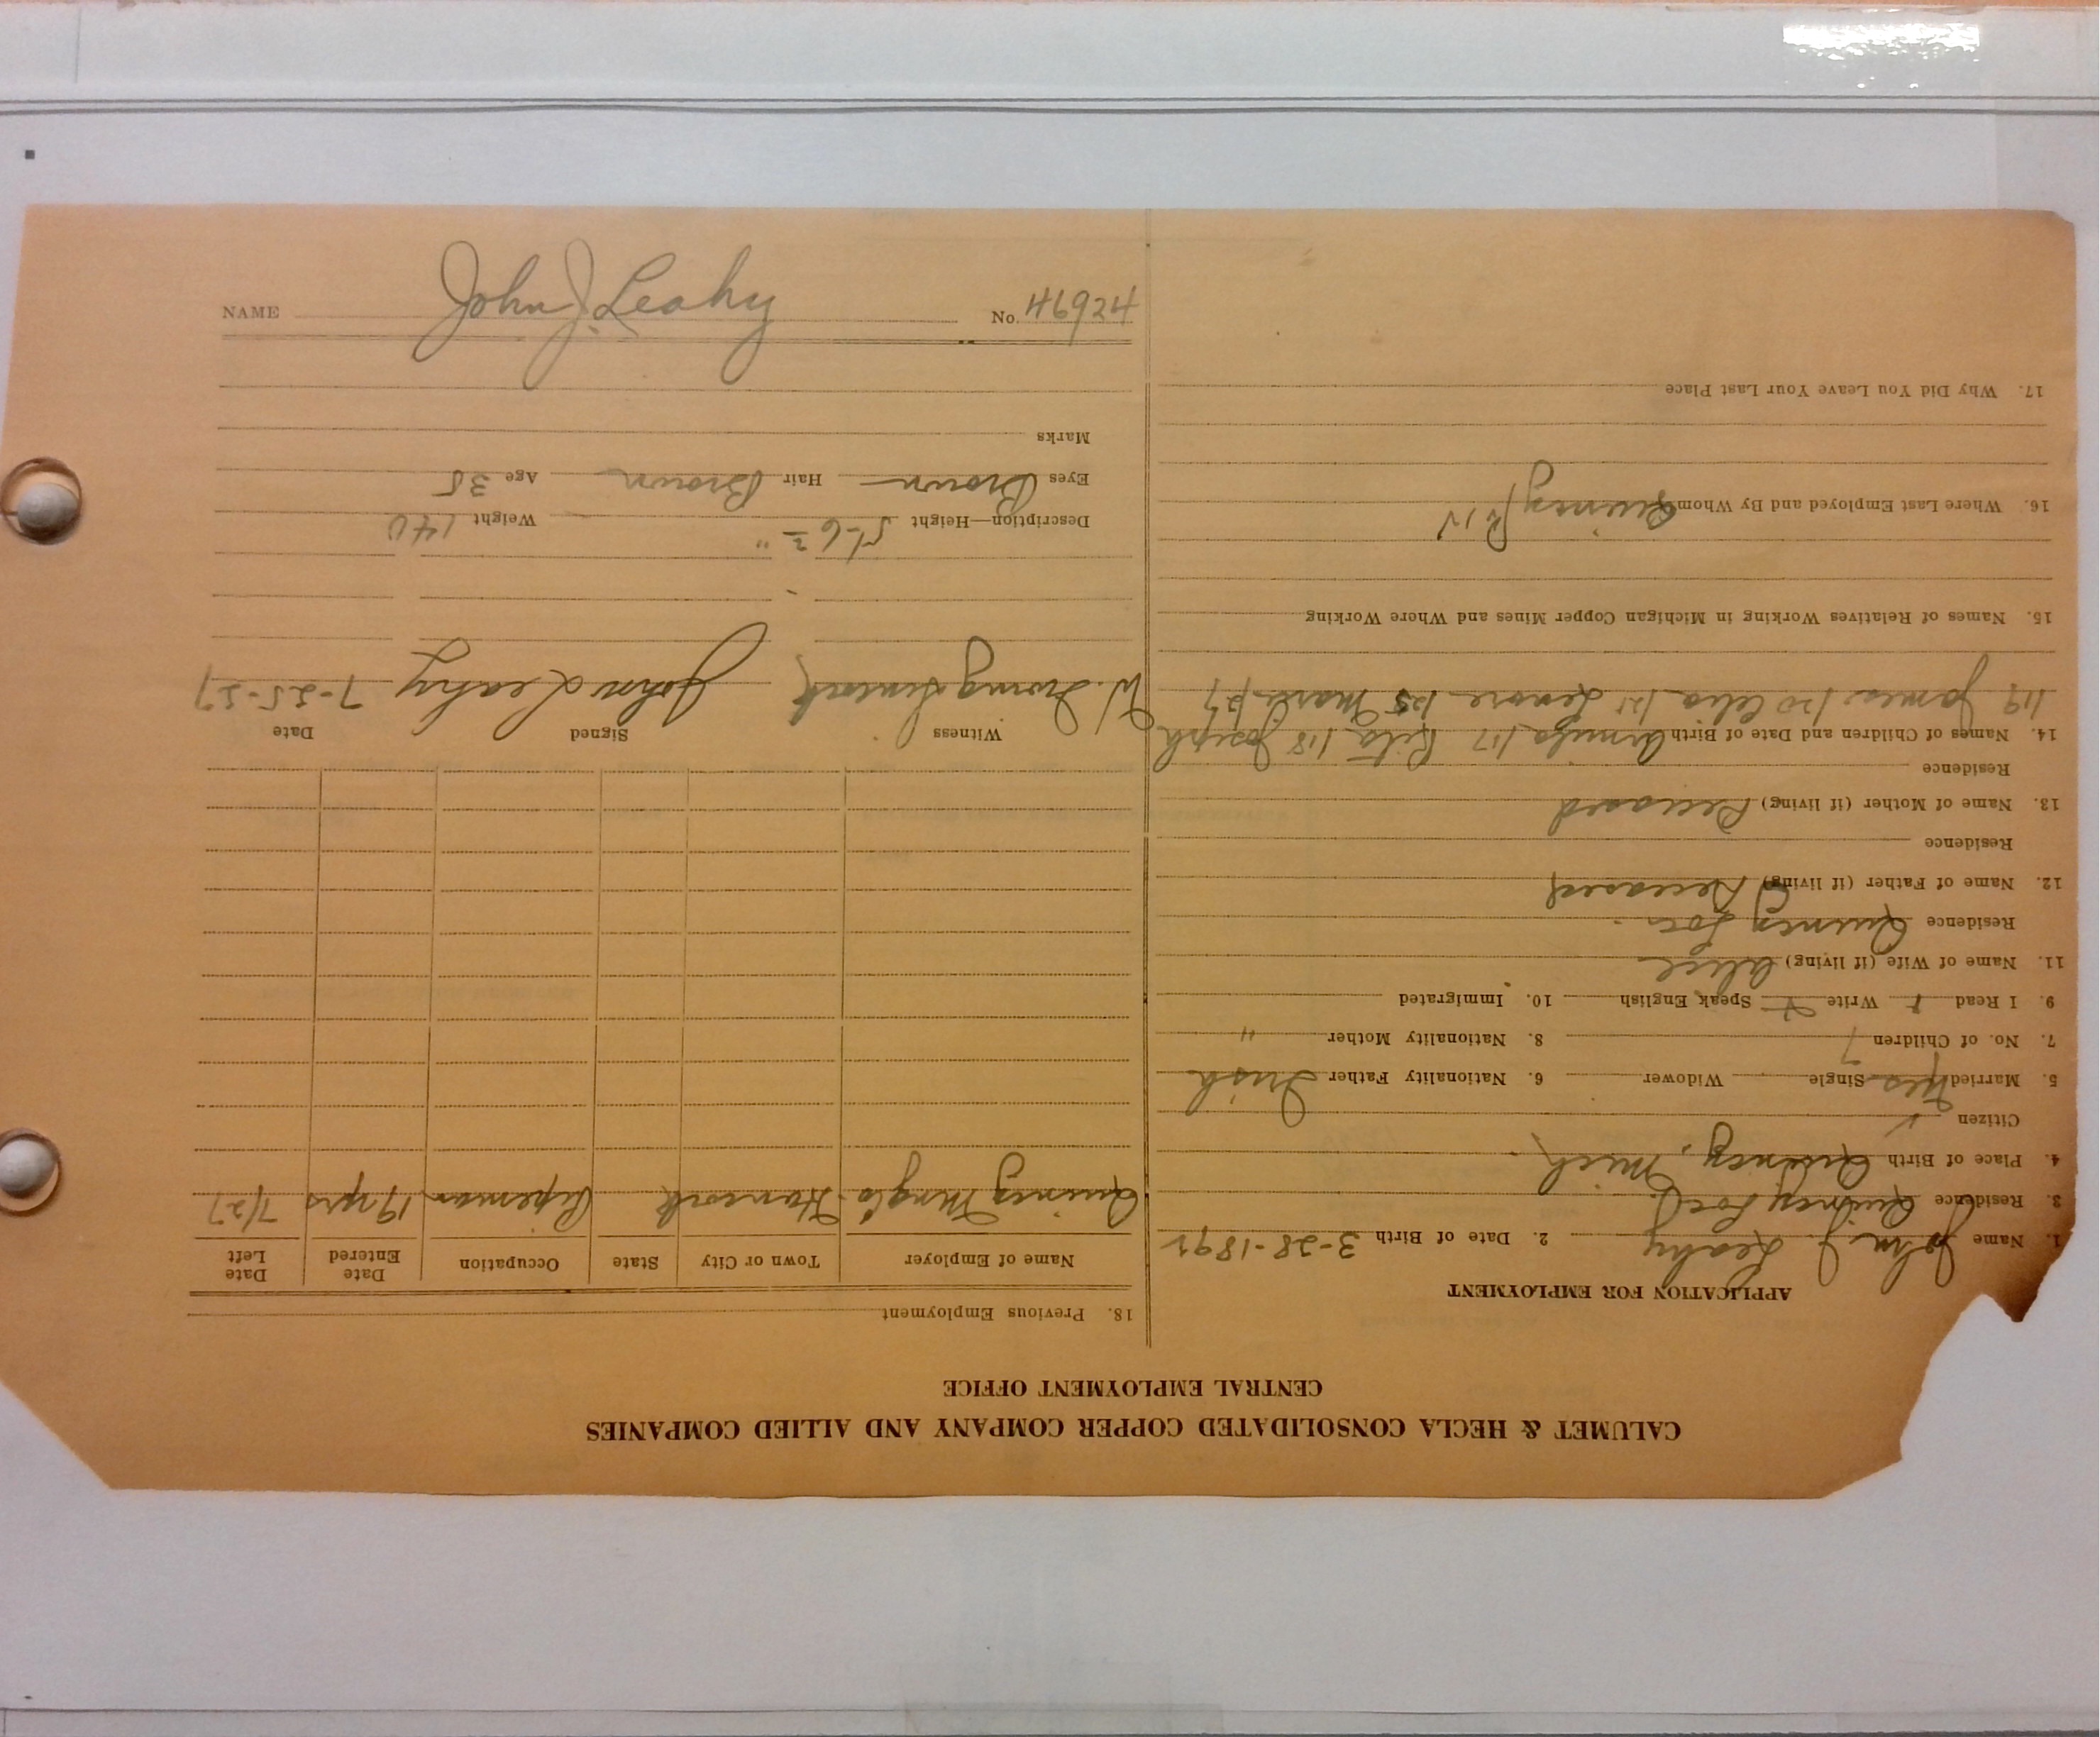 CALUMET & HECLA CONSOLIDATED COPPER COMPANY AND ALLIED COMPANIES
CENTRAL EMPLOYMENT OFFICE
APPLICATION FOR EMPLOYMENT
1. Name John J. Leahy 2. Date of Birth 3-28-1892
3. Residence Quincy Loc.
4. Place of Birth Quincy, Mich.
Citizen ✓
5. Married Yes Single Widower 6. Nationality Father Irish
7. No. of Children 7 8. Nationality Mother "
9. I Read Write Speak English 10. Immigrated
11. Name of Wife (if living) Alice
Residence Quincy Loc.
12. Name of Father (if living) Deceased
Residence
13. Name of Mother (if living) Deceased
Residence
14. Names of Children and Date of Birth '17 Rita '18 Joseph
'19 James '20 Celia '21 Lenore '25 Marie '27
15. Names of Relatives Working in Michigan Copper Mines and Where Working
16. Where Last Employed and By Whom Quincy
17. Why Did You Leave Your Last Place
18. Previous Employment
Name of Employer Town or City State Occupation Date Entered Date Left
Quincy Mng Co. Hancock Piperman 19 yrs 7/27
Witness Signed Date
W. Irving John Leahy 7-25-27
Description—Height 5-6 " Weight 140
Eyes Brown Hair Brown Age 35
Marks
NAME John J. Leahy No. 46924